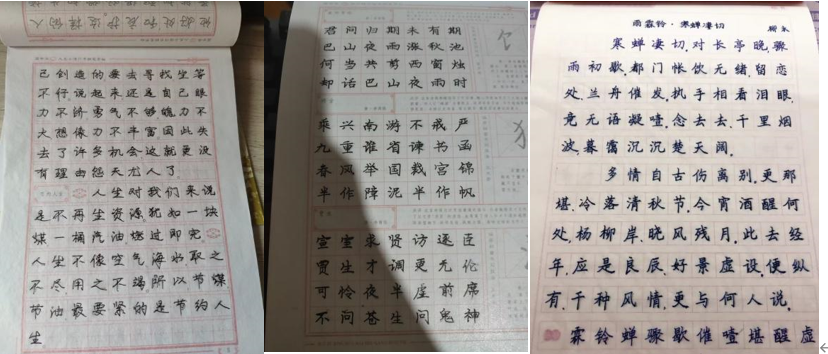 己创造的要去寻找坐等
不行说起来还是自己眼
力不济勇气不够魄力不
大想像力不丰富因此失
去了许多机会这就更没
有理由怨天尤人了
人生对我们来说
是不再生资源犹如一块
煤一桶汽油燃过即完
人生不像空气海水取之
不尽用之不竭所以节煤
节油最要紧的是节约人
生
君问归期未有期
巴山夜雨涨秋池
何当共剪西窗烛
却话巴山夜雨时
乘兴南游不戒严
九重谁省谏书函
春风举国裁宫锦
半作障泥半作帆
宣室求贤访逐臣
贾生才调更无伦
可怜夜半虚前席
不问苍生问鬼神
雨霖铃·寒蝉凄切
柳永
寒蝉凄切,对长亭晚,骤
雨初歇.都门帐饮无绪.留恋
处.兰舟催发.执手相看泪眼.
竟无语凝噎.念去去.千里烟
波.暮霭沉沉楚天阔.
多情自古伤离别.更那
堪.冷落清秋节.今宵酒醒何
处.杨柳岸.晓风残月.此去经
年.应是良辰.好景虚设.便纵
有.千种风情.更与何人说.
霖铃蝉骤歇催噎堪醒虚